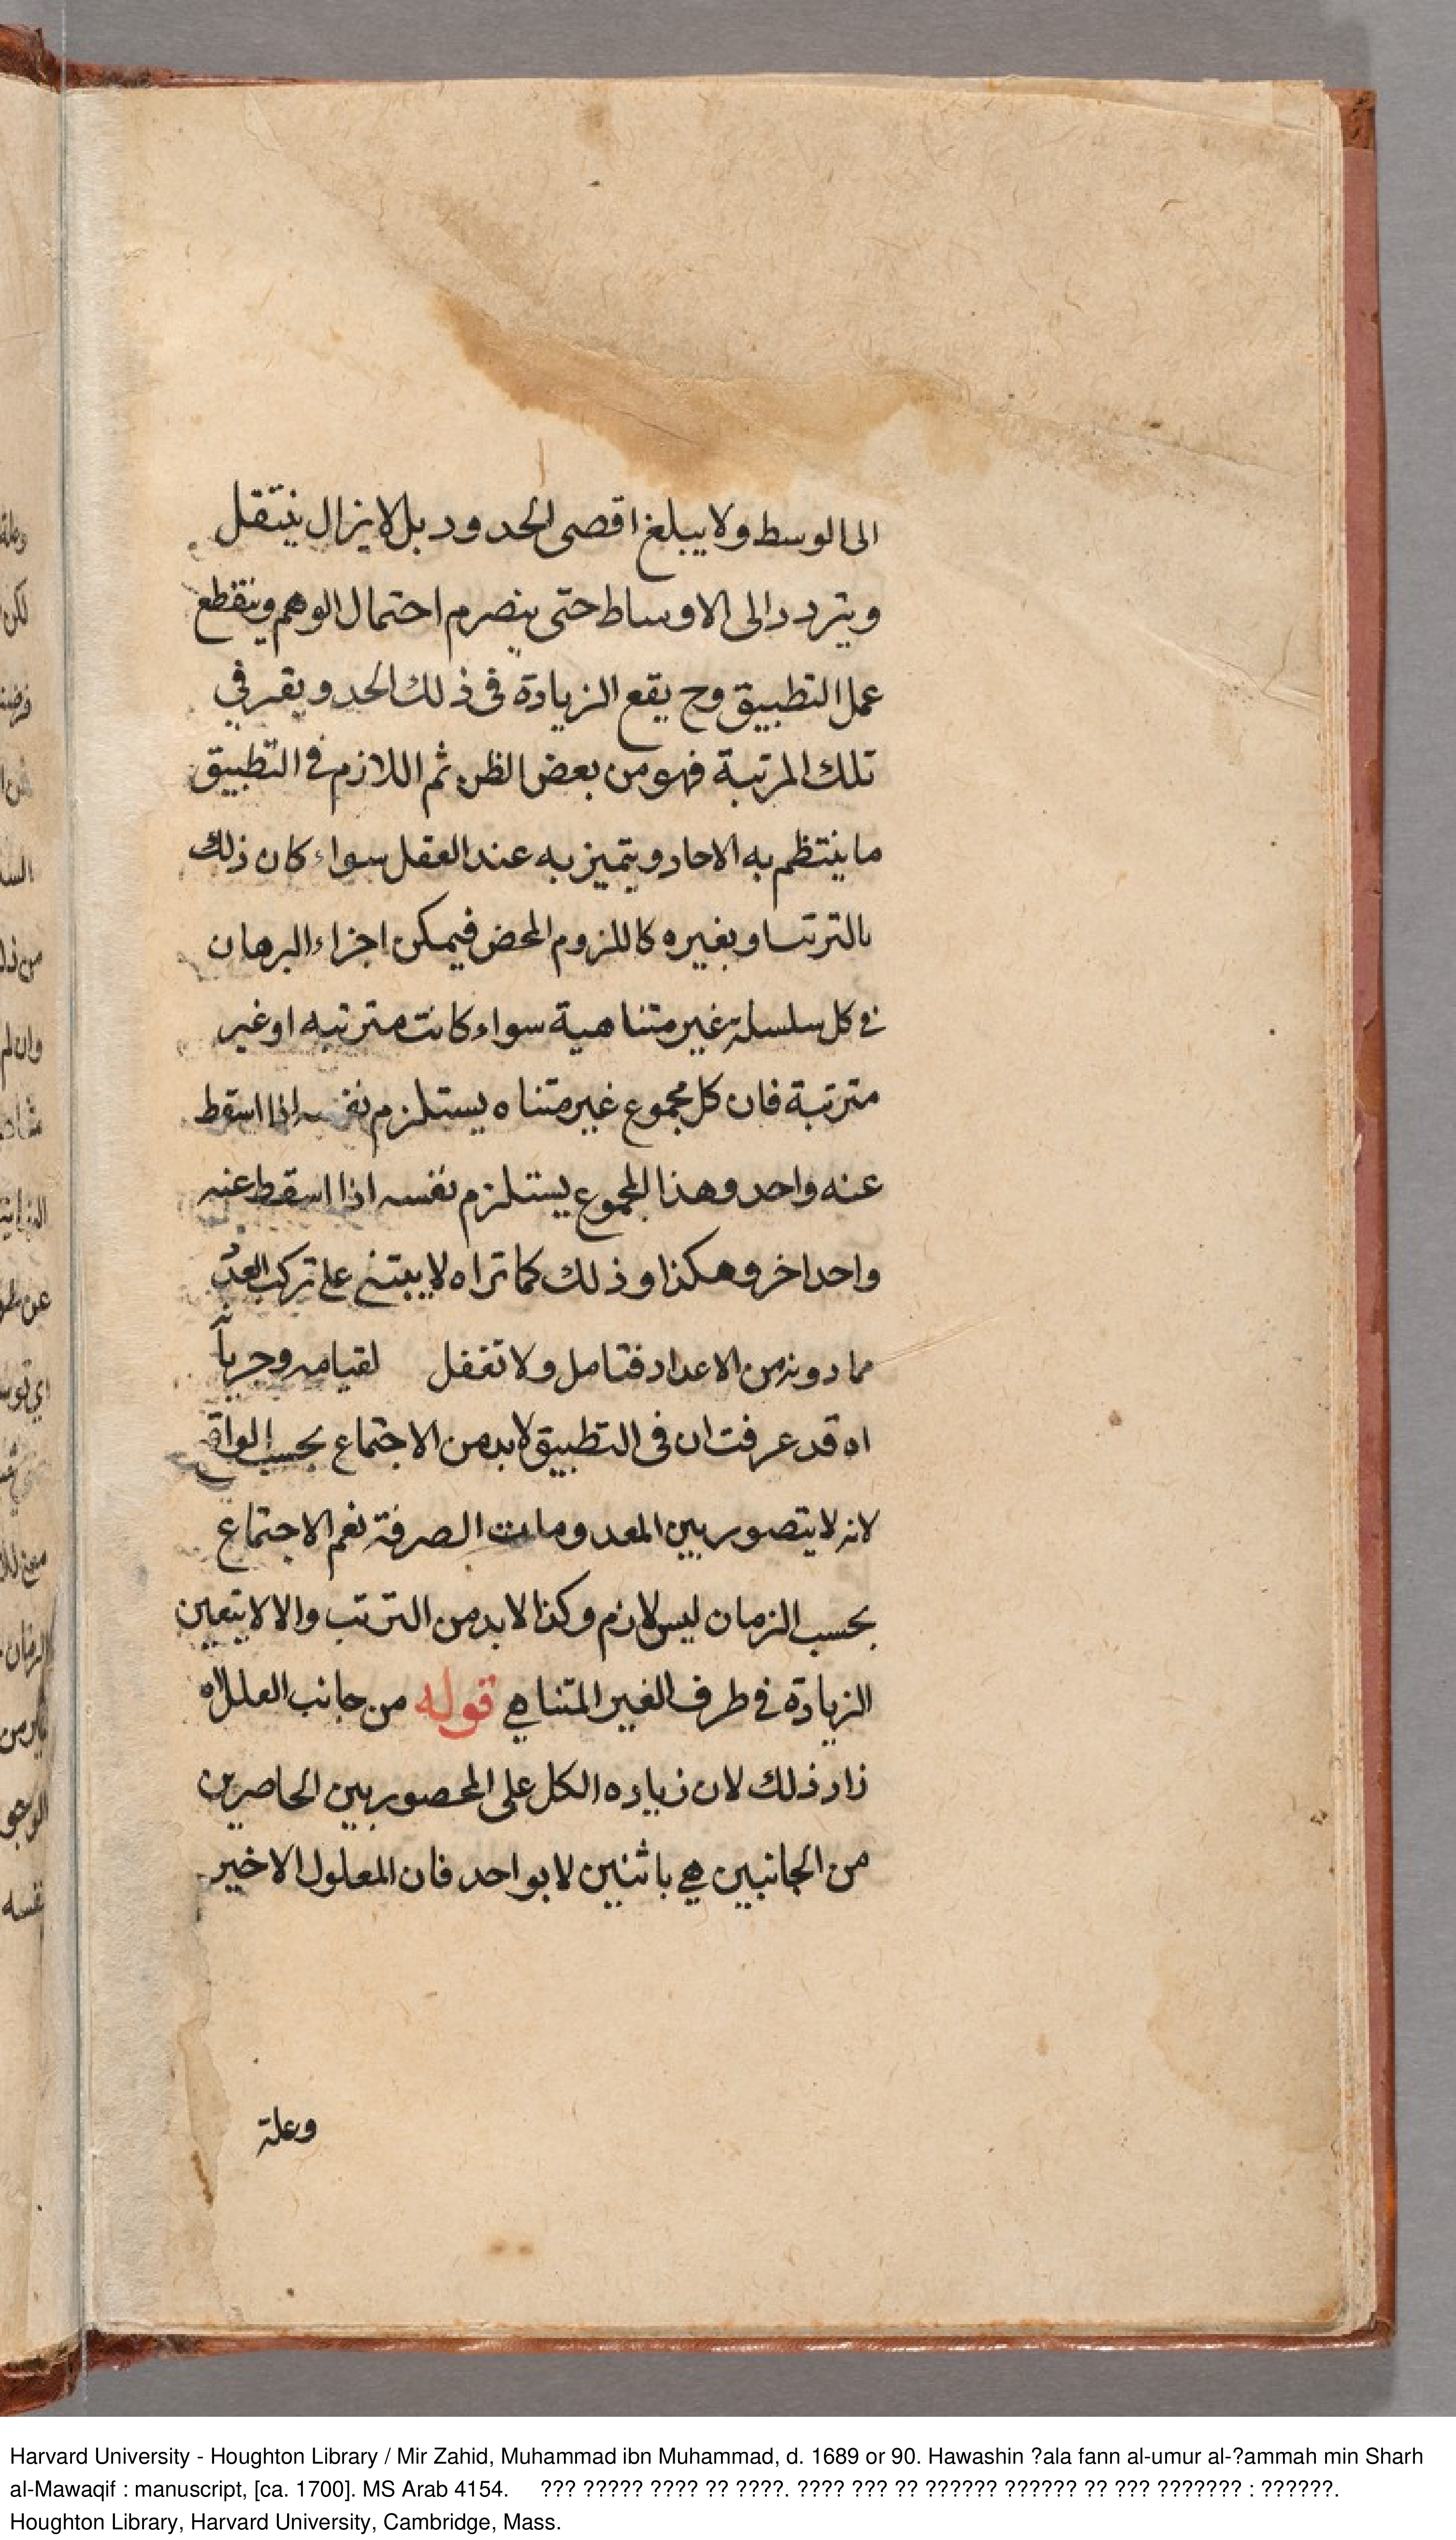 الى الوسط ولا يبلغ اقصى الحدود بل لا يزال ينتقل
ويتردد الى الاوساط حتى ينصرم احتمال الوهم وينقطع
عمل التطبيق وح يقع الزيادة فى ذلك الحد ويقر في
تلك المرتبة فهو من بعض الظن ثم اللازم في التطبيق
ما ينتظم به الاحاد ويتميز به عند العقل سواء كان ذلك
بالترتب او بغيره كاللزوم المحض فيمكن اجراء البرهان
في كل سلسلة غير متناهية سواء كانت مترتبه او غير
مترتبة فان كل مجموع غير متناه يستلزم نفسه اذا اسقط
عنه واحد وهذا المجموع يستلزم نفسه اذا اسقط عنه
واحد اخر وهكذا وذلك كما تراه لا يبتنى على تركب العدد
مما دونه من الاعداد فتامل ولا تغفل لقيامه وجريا
اه قد عرفت ان فى التطبيق لا بد من الاجتماع بحسب الواقع
لانه لا يتصور بين المعدومات الصرفة نعم الاجتماع
بحسب الزمان ليس لازم وكذا لا بد من الترتب والا لا يتعين
الزيادة في طرف الغير المتناهي قوله من جانب العلل اه
زاد ذلك لان زياده الكل على المحصور بين الحاصرين
من الجانبين هي باثنين لا بواحد فان المعلول الاخير
وعلة
Harvard University - Houghton Library / Mir Zahid, Muhammad ibn Muhammad, d. 1689 or 90. Hawashin ?ala fann al-umur al-?ammah min Sharh
al-Mawaqif : manuscript, [ca. 1700]. MS Arab 4154. ??? ????? ???? ?? ????. ???? ??? ?? ?????? ?????? ?? ??? ??????? : ??????.
Houghton Library, Harvard University, Cambridge, Mass.